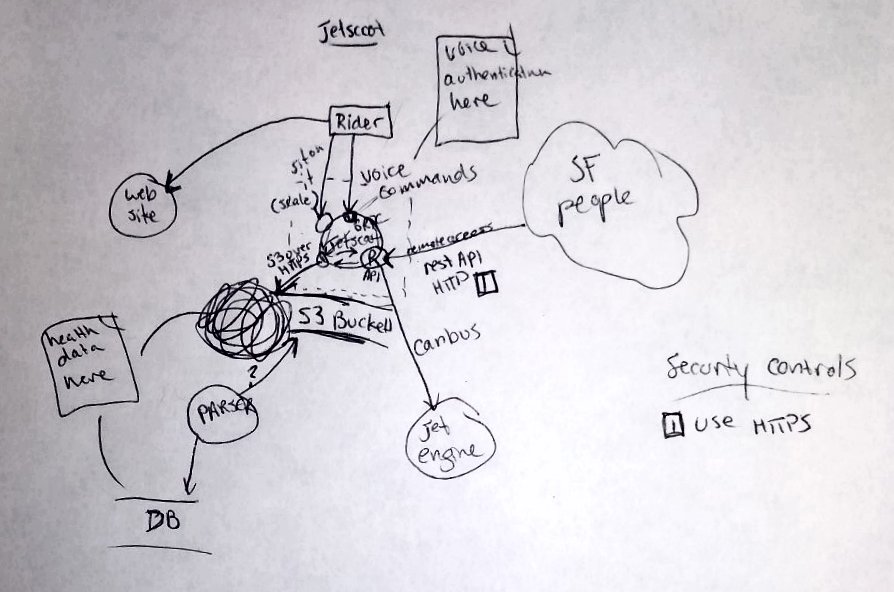 Jetscoot
voice
authentication
here
Rider
sit on
it
(scale)
voice
commands
web
site
SF
people
Jetscoot
S3 over
HTTPS
R
API
remote access
rest API
HTTP 1
S3 Bucket
canbus
health
data
here
?
PARSER
Jet
engine
DB
Security controls
1 use HTTPS